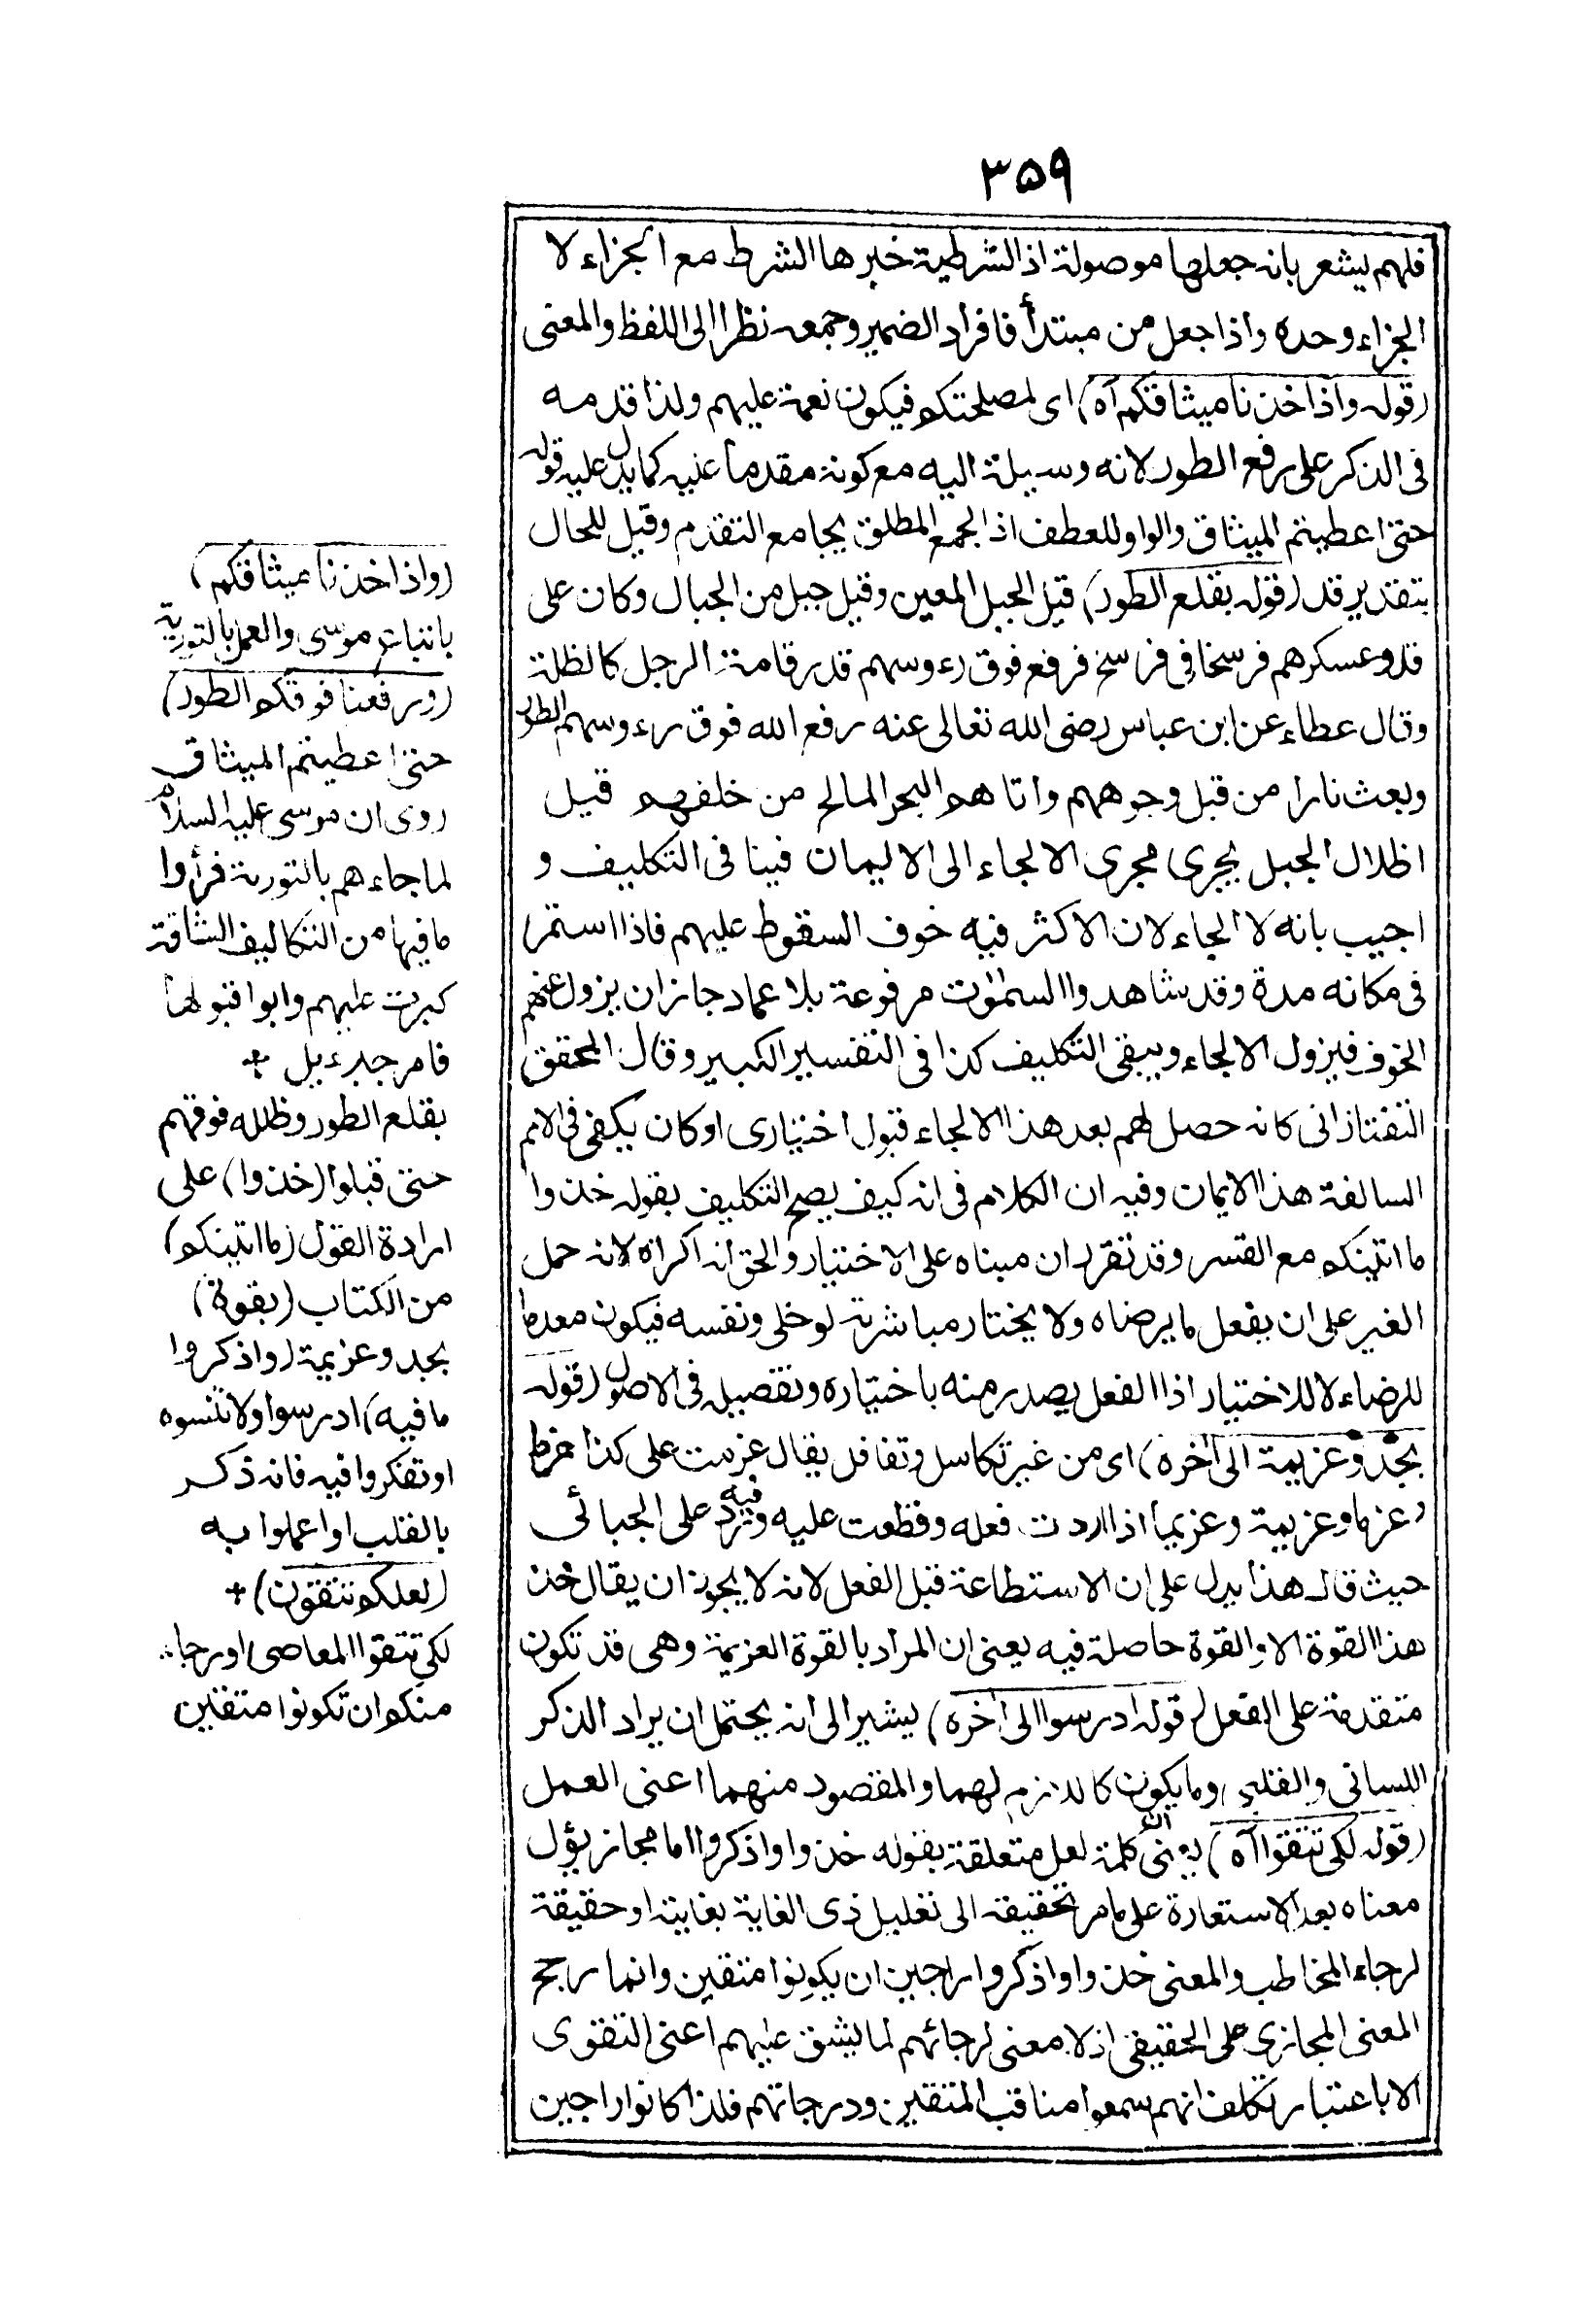 ۳۵۹
فلهم يشعر بانه جعلها موصولة اذ الشرطية خبرها الشرط مع الجزاء لا
الجزاء وحده واذا جعل من مبتدأ فافراد الضمير وجمعه نظرا الى اللفظ والمعنى
(قوله واذ اخذنا ميثاقكم آه) اى لمصلحتكم فيكون نعمة عليهم ولذا قدمه
فى الذكر على رفع الطور لانه وسيلة اليه مع كونه مقدما عليه كما يدل عليه قوله
حتى اعطيتم الميثاق والواو للعطف اذ الجمع المطلق يجامع التقدم وقيل للحال
بتقدير قد (قوله بقلع الطور) قيل الجبل المعين وقيل جبل من الجبال وكان على
قدر عسكرهم فرسخا فى فرسخ فرفع فوق رءوسهم قدر قامة الرجل كالظلة
وقال عطاء عن ابن عباس رضى الله تعالى عنه رفع الله فوق رءوسهم الطور
وبعث نارا من قبل وجوههم واتاهم البحر المالح من خلفهم قيل
اظلال الجبل يجرى مجرى الالجاء الى الايمان فينافى التكليف و
اجيب بانه لا الجاء لان الاكثر فيه خوف السقوط عليهم فاذا استمر
فى مكانه مدة وقد شاهدوا السمٰوٰت مرفوعة بلا عماد جاز ان يزول عنهم
الخوف فيزول الالجاء ويبقى التكليف كذا فى التفسير الكبير وقال المحقق
التفتازانى كانه حصل لهم بعد هذا الالجاء قبول اختيارى او كان يكفى فى الامم
السالفة هذا الايمان وفيه ان الكلام فى انه كيف يصح التكليف بقوله خذوا
ما اتينكم مع القسر وقد تقرر ان مبناه على الاختيار والحق انه اكراه لانه حمل
الغير على ان يفعل ما يرضاه ولا يختار مباشرته لو خلى ونفسه فيكون معدما
للرضاء لا للاختيار اذ الفعل يصدر منه باختياره وتفصيله فى الاصول (قوله
بجد وعزيمة الى اخره) اى من غير تكاسل وتغافل يقال عزمت على كذا عزما
وعزما وعزيمة وعزيما اذا اردت فعله وقطعت عليه وفيه رد على الجبائى
حيث قال هذا يدل على ان الاستطاعة قبل الفعل لانه لا يجوز ان يقال خذ
هذا القوة الا والقوة حاصلة فيه يعنى ان المراد بالقوة العزيمة وهى قد تكون
متقدمة على الفعل (قوله ادرسوا الى اخره) يشير الى انه يحتمل ان يراد الذكر
اللسانى والقلبى وما يكون كاللازم لهما والمقصود منهما اعنى العمل
(قوله لكى تتقوا آه) يعنى ان كلمة لعل متعلقة بقوله خذوا واذكروا اما مجاز يؤل
معناه بعد الاستعارة على ما مر تحقيقه الى تعليل ذى الغاية بغايته او حقيقة
لرجاء المخاطب والمعنى خذوا واذكروا راجين ان يكونوا متقين وانما رجح
المعنى المجازى على الحقيقى اذ لا معنى لرجائهم لما يشق عليهم اعنى التقوى
الا باعتبار تكلف انهم سمعوا مناقب المتقين ودرجاتهم فلذا كانوا راجين
(واذ اخذنا ميثاقكم)
باتباع موسى والعمل بالتورية
(ورفعنا فوقكم الطور)
حتى اعطيتم الميثاق
روى ان موسى عليه السلام
لما جاءهم بالتورية فرأوا
ما فيها من التكاليف الشاقة
كبرت عليهم وابوا قبولها
فامر جبرءيل
بقلع الطور وظلله فوقهم
حتى قبلوا (خذوا) على
ارادة القول (ما اتينكم)
من الكتاب (بقوة)
بجد وعزيمة (واذكروا
ما فيه) ادرسوا ولا تنسوه
او تفكروا فيه فانه ذكر
بالقلب او اعملوا به
(لعلكم تتقون)
لكى تتقوا المعاصى او رجاء
منكم ان تكونوا متقين